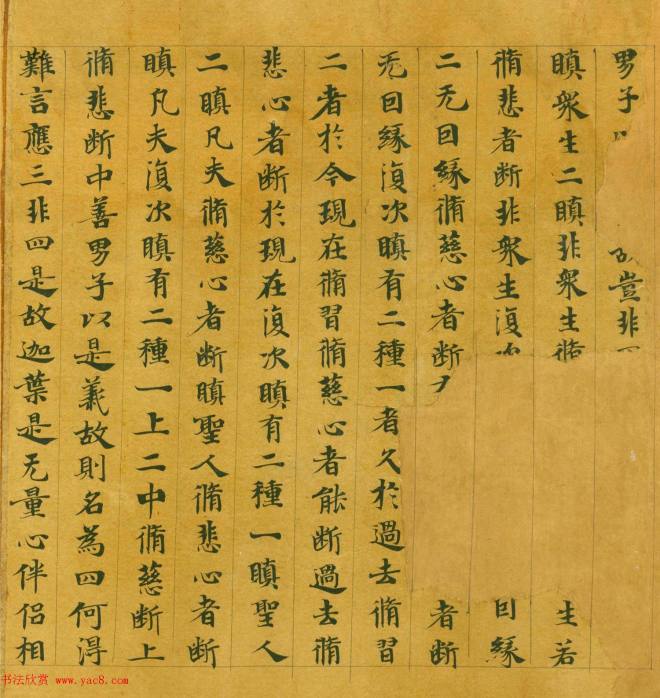 男子以 豈非
瞋衆生二瞋非衆生脩 生若
脩悲者断非衆生復 因緣
二无因緣脩慈心者断 者断
无因緣復次瞋有二種一者久於過去脩習
二者於今現在脩習脩慈心者能断過去脩
悲心者断於現在復次瞋有二種一瞋聖人
二瞋凡夫脩慈心者断瞋聖人脩悲心者断
瞋凡夫復次瞋有二種一上二中脩慈断上
脩悲断中善男子以是義故則名為四何得
難言應三非四是故迦葉是无量心伴侣相
书法欣赏 www.yac8.com